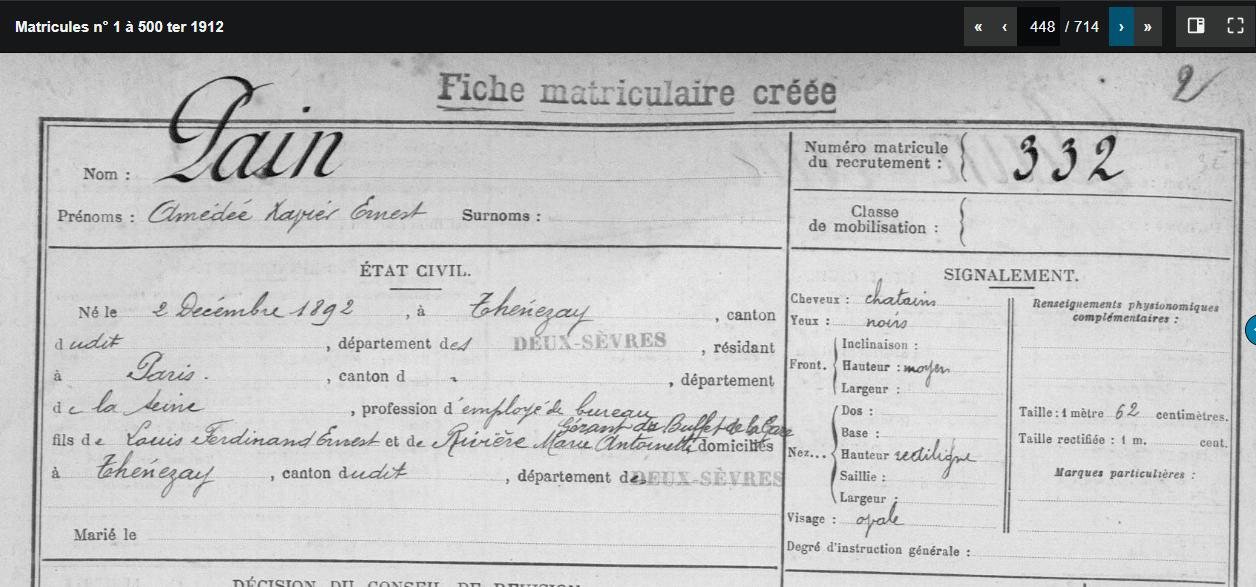 Matricules n° 1 à 500 ter 1912
« ‹ 448 / 714 › »
Fiche matriculaire créée
2
Nom : Pain
Prénoms : Amédée Xavier Ernest Surnoms :
Numéro matricule du recrutement : 332
Classe de mobilisation :
ÉTAT CIVIL.
Né le 2 Décembre 1892, à Thénezay, canton
dudit, département des DEUX-SÈVRES, résidant
à Paris., canton d , département
de la Seine, profession d'employé de bureau
Gérant du Buffet de la Gare
fils de Louis Ferdinand Ernest et de Rivière Marie Antoinette domiciliés
à Thénezay, canton dudit, département des DEUX-SÈVRES
Marié le
SIGNALEMENT.
Cheveux : chatains
Yeux : noirs
Front. Inclinaison :
Hauteur : moyen
Largeur :
Nez... Dos :
Base :
Hauteur rectiligne
Saillie :
Largeur :
Visage : ovale
Degré d'instruction générale :
Renseignements physionomiques
complémentaires :
Taille : 1 mètre 62 centimètres.
Taille rectifiée : 1 m. cent.
Marques particulières :
DÉCISION DU CONSEIL DE REVISION